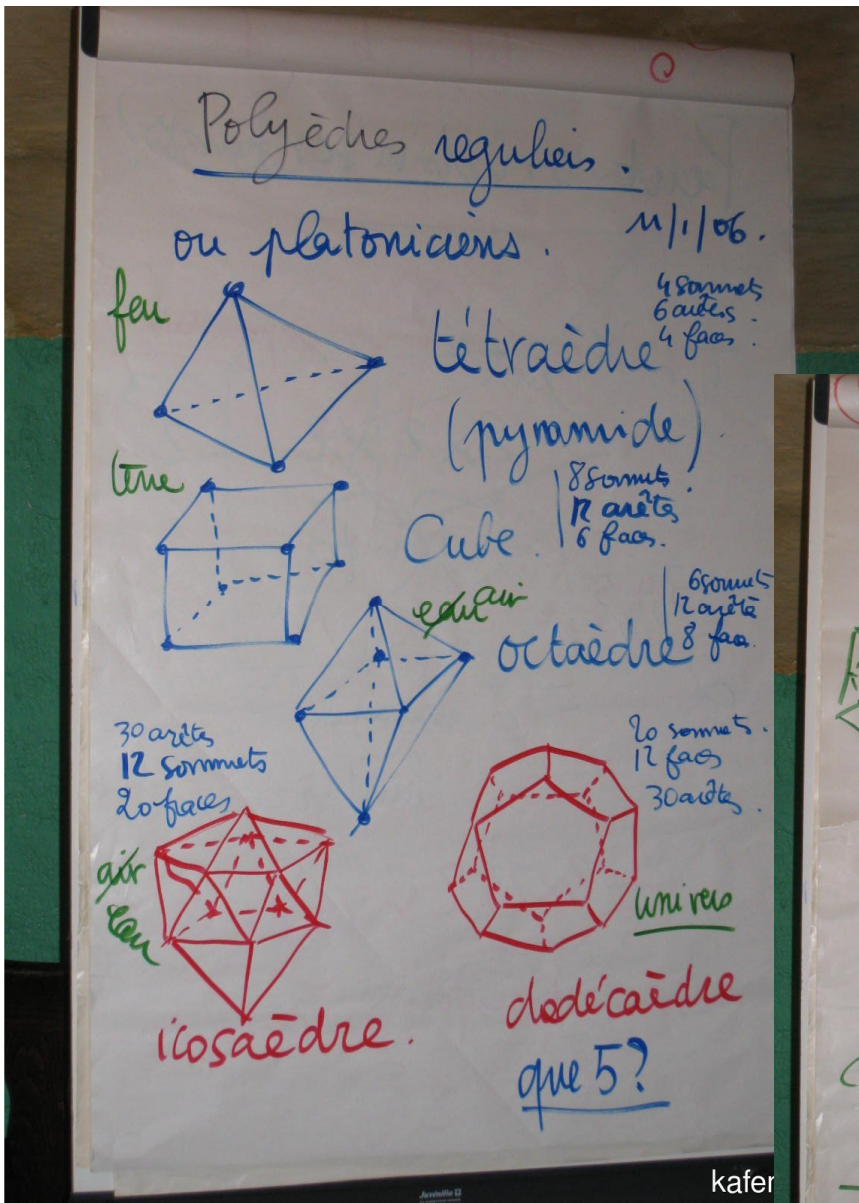 Polyèdres reguliers.
ou platoniciens.
11/1/06.
feu
tétraèdre
(pyramide)
4 sommets
6 arêtes.
4 faces.
terre
Cube.
8 sommets.
12 arêtes
6 faces.
eau air
octaèdre
6 sommets
12 arête
8 faces.
30 arêtes
12 sommets
20 faces
air
eau
icosaèdre.
20 sommets.
12 faces
30 arêtes.
univers
dodécaèdre
que 5?
kafer